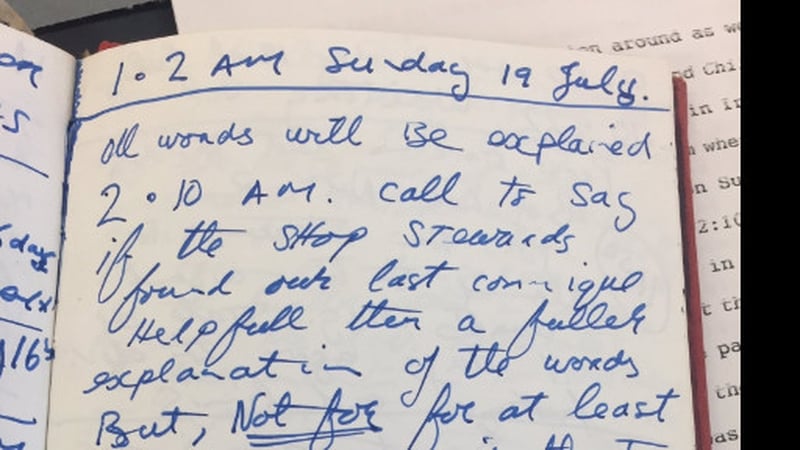 1.2 AM Sunday 19 July.
all words will Be explained
2.10 AM. call to say
if the SHOP STEWARDS
found our last comnique
Helpfull then a fuller
explanation of the words
But, Not for for at least
on around as we
d Chi
in
n whe
n Su
2:10
in
t th
pa
the
as
days